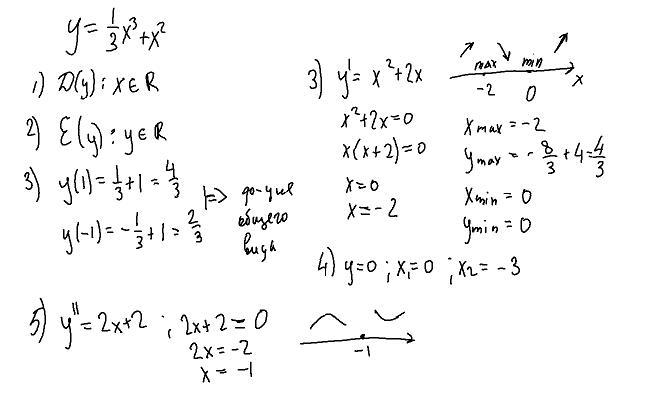 y = 1/3 x³ + x²
1) D(y): x ∈ R
2) E(y): y ∈ R
3) y(1) = 1/3 + 1 = 4/3
y(-1) = -1/3 + 1 = 2/3
|=> ф-ция
общего
вида
3) y' = x² + 2x
x² + 2x = 0
x(x+2) = 0
x = 0
x = -2
max min
-2 0 x
x max = -2
y max = -8/3 + 4 = 4/3
x min = 0
y min = 0
4) y = 0 ; x₁ = 0 ; x₂ = -3
5) y'' = 2x + 2 ; 2x + 2 = 0
2x = -2
x = -1
-1